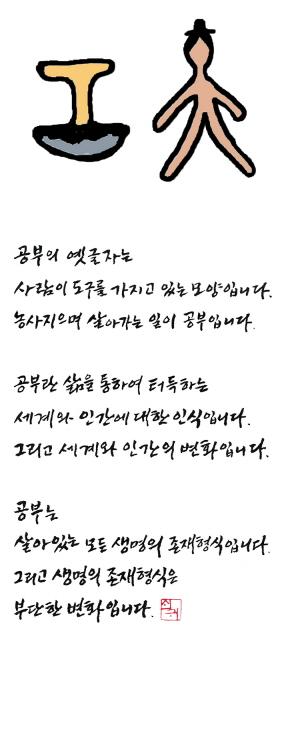 공부의 옛글자는
사람이 도구를 가지고 있는 모양입니다.
농사지으며 살아가는 일이 공부입니다.
공부란 삶을 통하여 터득하는
세계와 인간에 대한 인식입니다.
그리고 세계와 인간의 변화입니다.
공부는
살아있는 모든 생명의 존재형식입니다.
그리고 생명의 존재형식은
부단한 변화입니다.